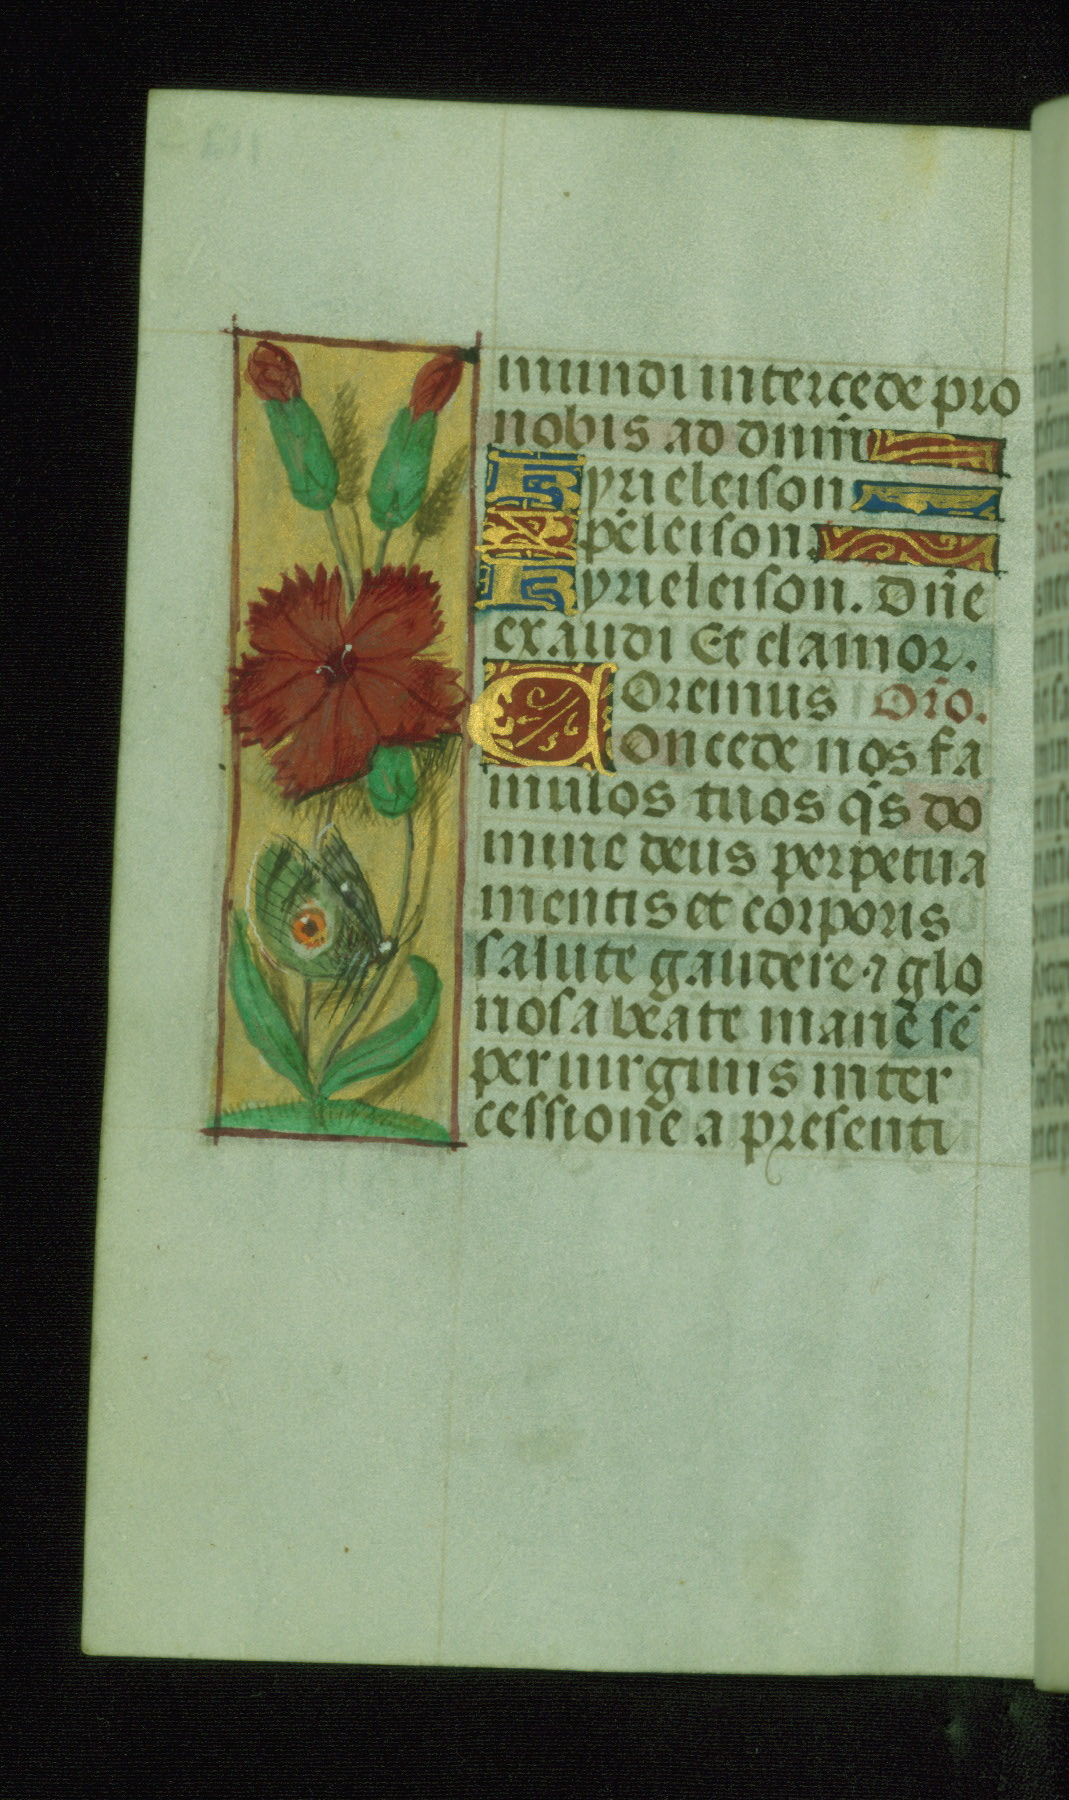 mundi intercede pro
nobis ad dnm̄
Kyrieleison
Xp̄eleison.
Kyrieleison. Dn̄e
exaudi Et clamor.
Oremus Orō.
Concede nos fa
mulos tuos q̄s do
mine deus perpetua
mentis et corporis
salute gaudere ⁊ glo
riosa beate marie sē
per uirginis inter
cessione a presenti